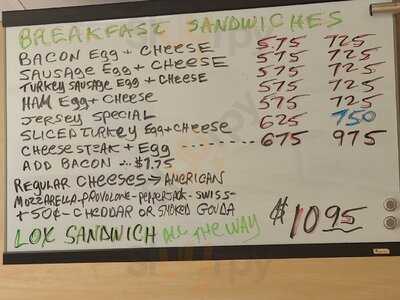 BREAKFAST SANDWICHES
BACON Egg + CHEESE 575 725
SAUSAGE Egg + CHEESE 575 725
TURKEY SAUSAGE Egg + CHEESE 575 725
HAM Egg + CHEESE 575 725
JERSEY SPECIAL 575 725
SLICED TURKEY Egg + CHEESE 625 750
CHEESE STEAK + Egg -------- 675 975
ADD BACON ... $1.75
REGULAR CHEESES → AMERICAN
MOZZARELLA - PROVOLONE - PEPPERJACK - SWISS -
+50¢ - CHEDDAR OR SMOKED GOUDA
LOX SANDWICH ALL THE WAY $1095